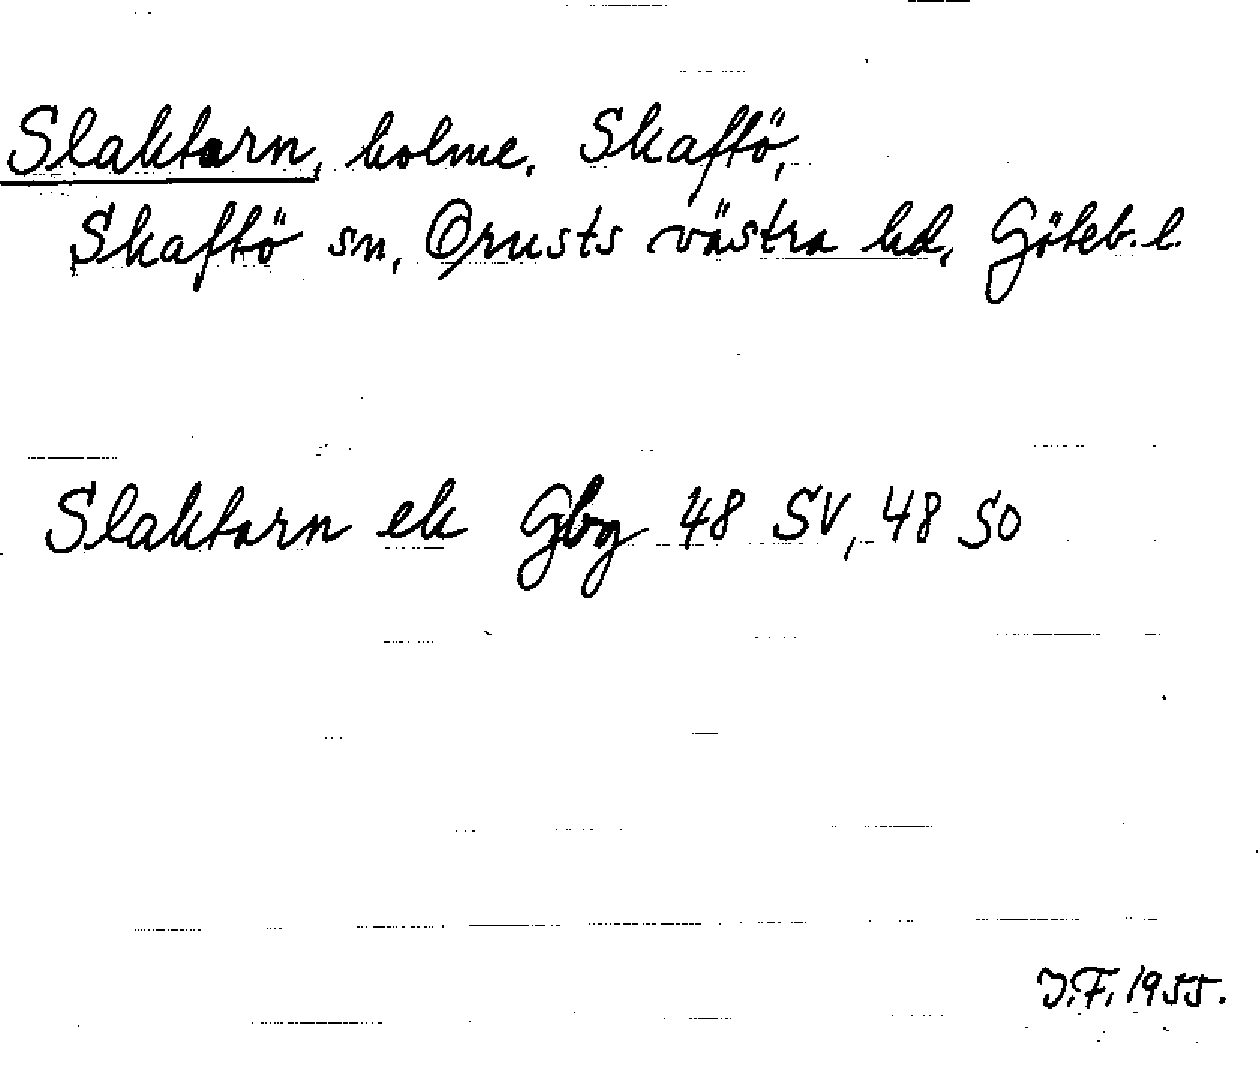 Slaktarn, holme, Skaftö,
Skaftö sn, Orusts västra hd, Göteb. l.
Slaktarn ek Gbg 48 SV, 48 SO
J.F. 1955.